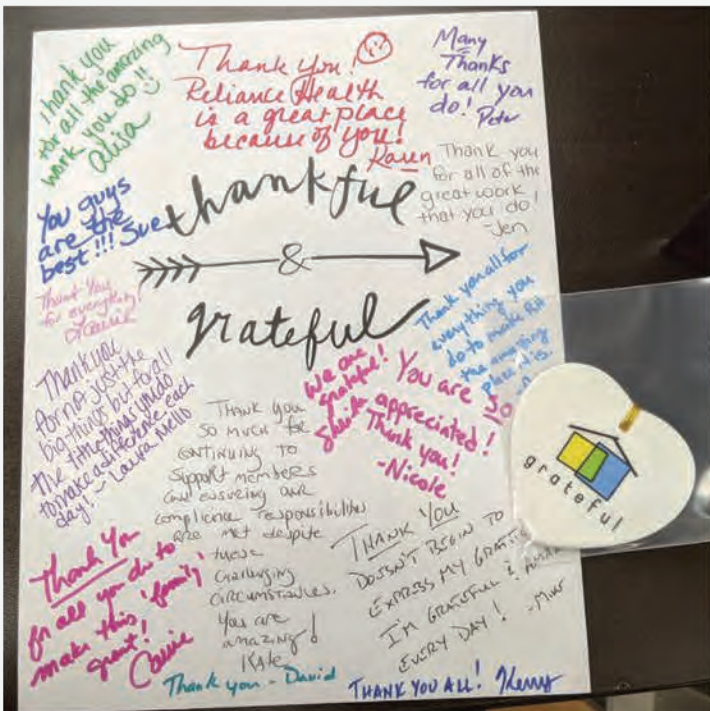 Thank you
for all the amazing
work you do!!
alisa
Thank you!
Reliance Health
is a great place
because of you!
Karen
Many
Thanks
for all you
do! Peter
Thank you
for all of the
great work
that you do!
-Jen
You guys
are the
best!!! Sue
thankful
&
grateful
Thank You
for everything!
Thank you all for
everything you
do to make RH
the amazing
place it is.
Thank you
for not just the
big things but for all
the little things you do
to make a difference each
day! - Laura Mello
We are
grateful!
Sheila
You are so
appreciated!
Thank you!
-Nicole
Thank you
so much for
continuing to
support members
and ensuring our
compliance responsibilities
are met despite
these
challenging
circumstances.
You are
amazing!
Kate
Thank You
doesn't begin to
express my
I'm grateful &
every day!
Thank You
for all you do to
make this 'family'
great!
Carrie
Thank you - David
THANK YOU ALL! Kerry
grateful